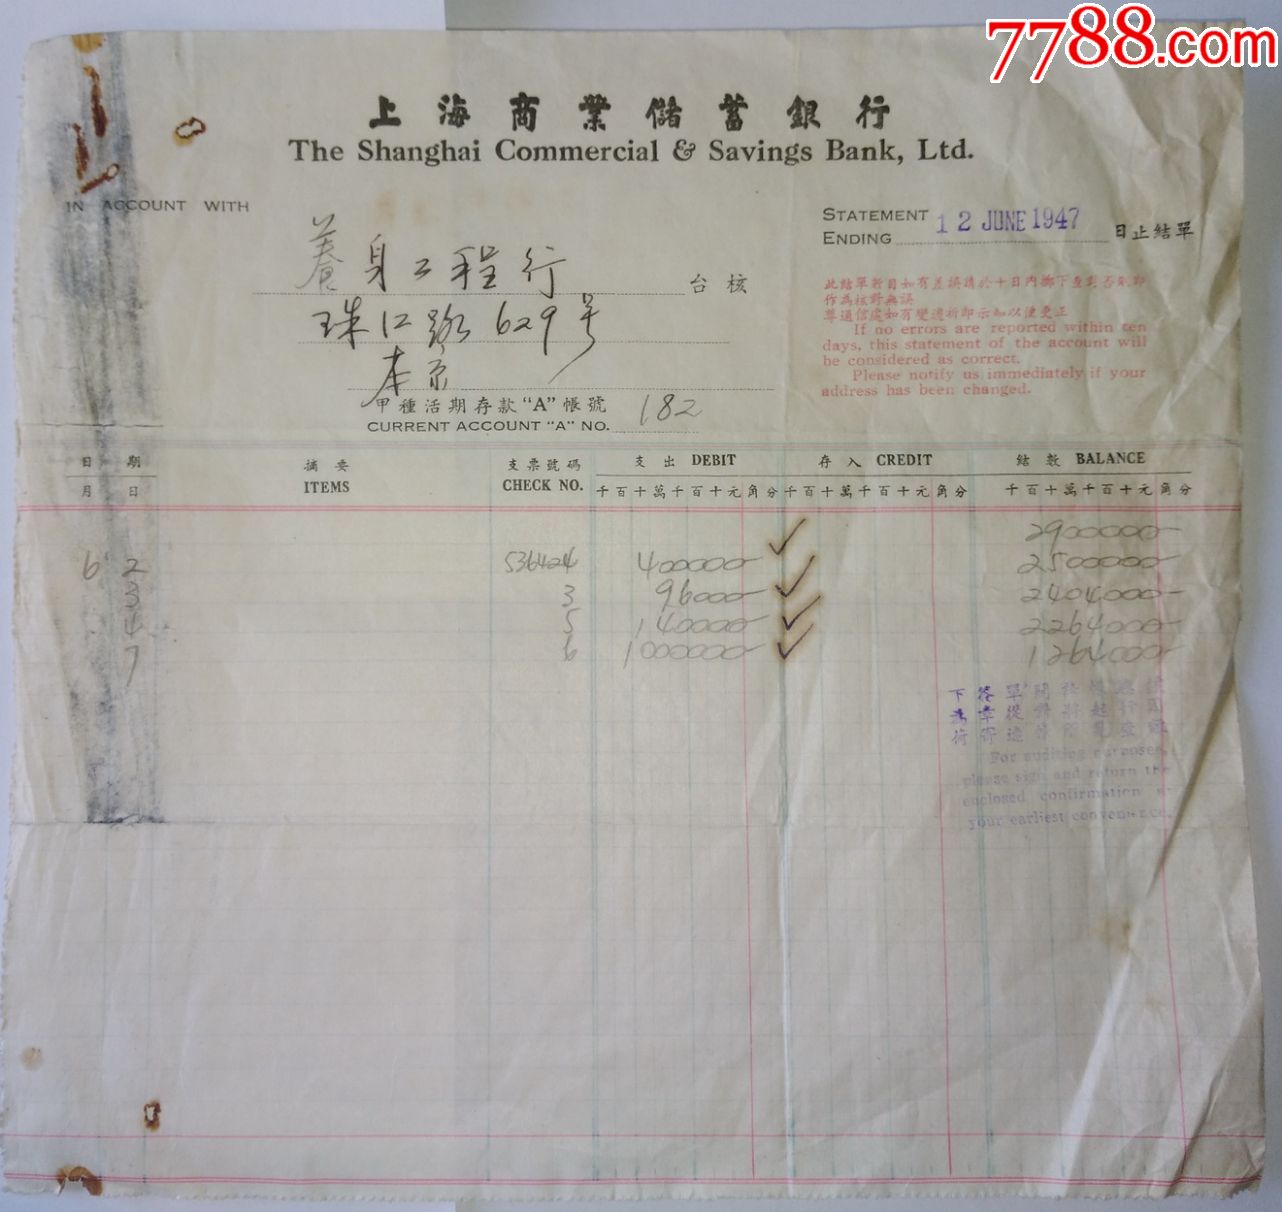 7788.com
上海商業儲蓄銀行
The Shanghai Commercial & Savings Bank, Ltd.
IN ACCOUNT WITH
STATEMENT ENDING 12 JUNE 1947 日止結單
養身工程行 台核
珠江路629号
本京
此結單數目如有差誤請於十日內擲下查對否則即
作為核對無誤
尊通信處如有變遷祈即示知以便更正
If no errors are reported within ten
days, this statement of the account will
be considered as correct.
Please notify us immediately if your
address has been changed.
甲種活期存款"A"帳號 182
CURRENT ACCOUNT "A" NO.
日期 摘要 支票號碼 支出 DEBIT 存入 CREDIT 結數 BALANCE
月 日 ITEMS CHECK NO. 千百十萬千百十元角分 千百十萬千百十元角分 千百十萬千百十元角分
2900000-
6 2 536424 400000- 2500000-
3 3 96000- 2404000-
4 5 140000- 2264000-
7 6 1000000- 1264000-
For auditing purposes,
please sign and return the
enclosed confirmation at
your earliest convenience.